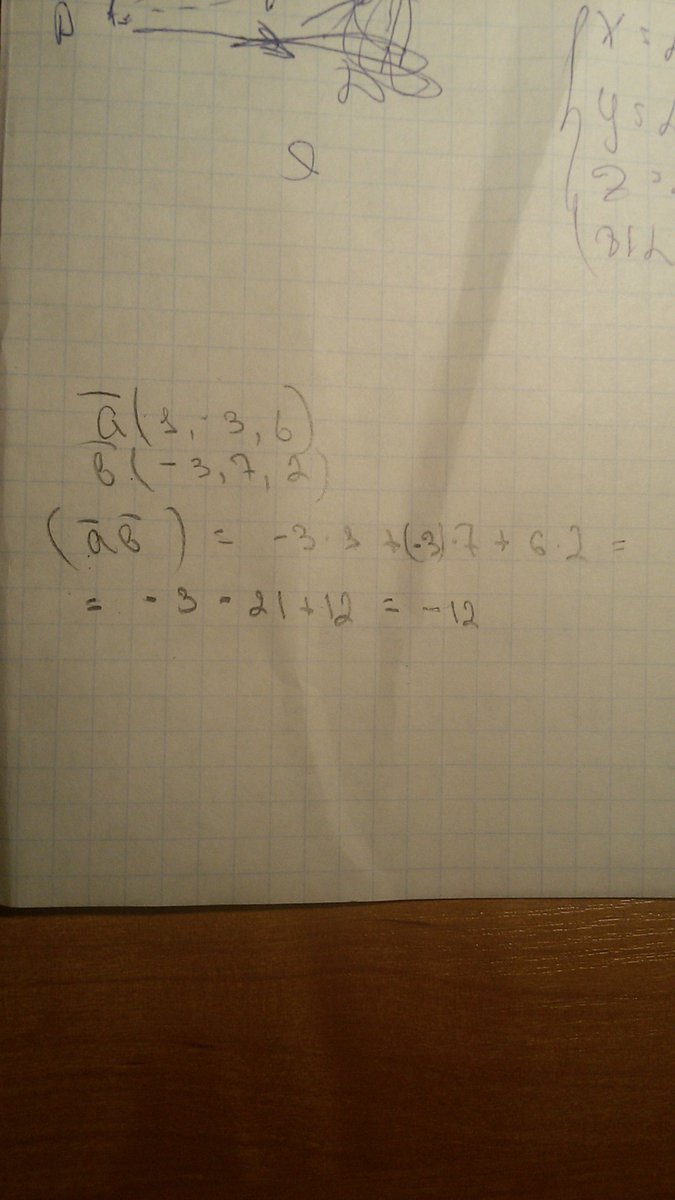 D
x =
y =
z =
a̅(1, -3, 6)
b̅(-3, 7, 2)
(a̅ b̅) = -3 · 1 + (-3) · 7 + 6 · 2 =
= -3 - 21 + 12 = -12